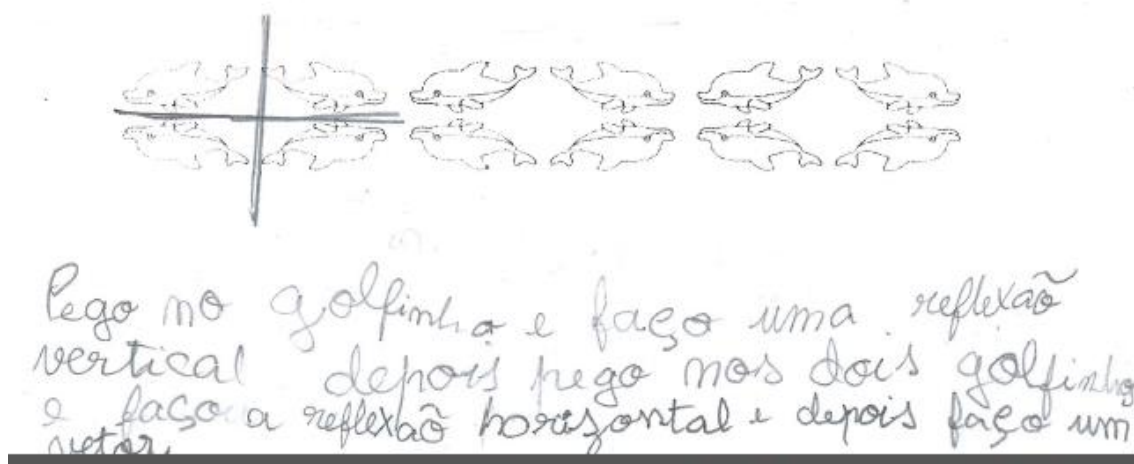 Pego no golfinho e faço uma reflexão
vertical depois pego nos dois golfinhos
e faço a reflexão horizontal e depois faço um
vetor